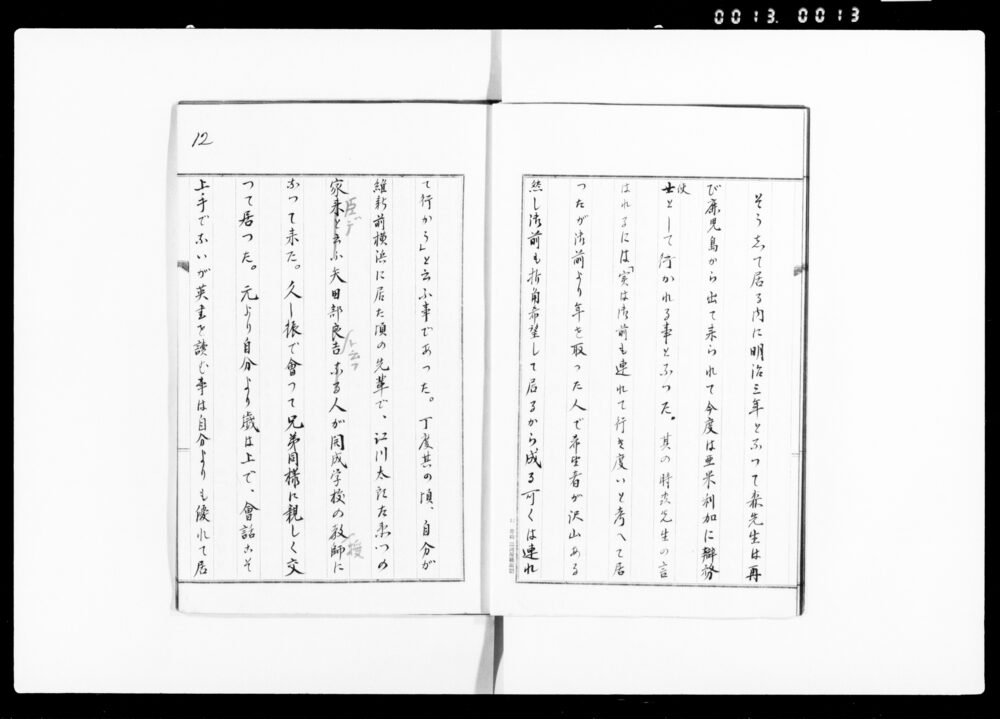 0013. 0013
そうして居る内に明治三年となつて森先生は再
び鹿児島から出て来られて今度は亜米利加に辯務
使
士として行かれる事となつた。其の時森先生の言
はれるには「実は御前も連れて行き度いと考へて居
つたが御前より年を取つた人で希望者が沢山ある
然し御前も折角希望して居るから成る可くは連れ
12
て行かう」と云ふ事であつた。丁度其の頃、自分が
維新前横浜に居た頃の先輩で、江川太郎左衛門の
家来と云ふ矢田部良吉なる人が開成学校の教師に
臣デ
ト云フ
授
なつて来た。久し振で會つて兄弟同様に親しく交
つて居つた。元より自分より歳は上で、會話こそ
上手でないが英書を読む事は自分よりも優れて居